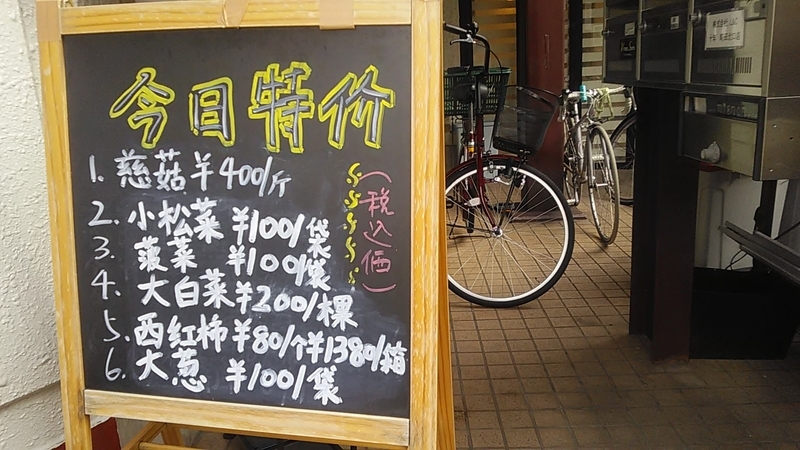 今日特价
1. 慈菇 ¥400/斤
2. 小松菜 ¥100/袋
3. 菠菜 ¥100/袋
4. 大白菜 ¥200/棵
5. 西红柿 ¥80/个 ¥1380/箱
6. 大葱 ¥100/袋
(税込価)